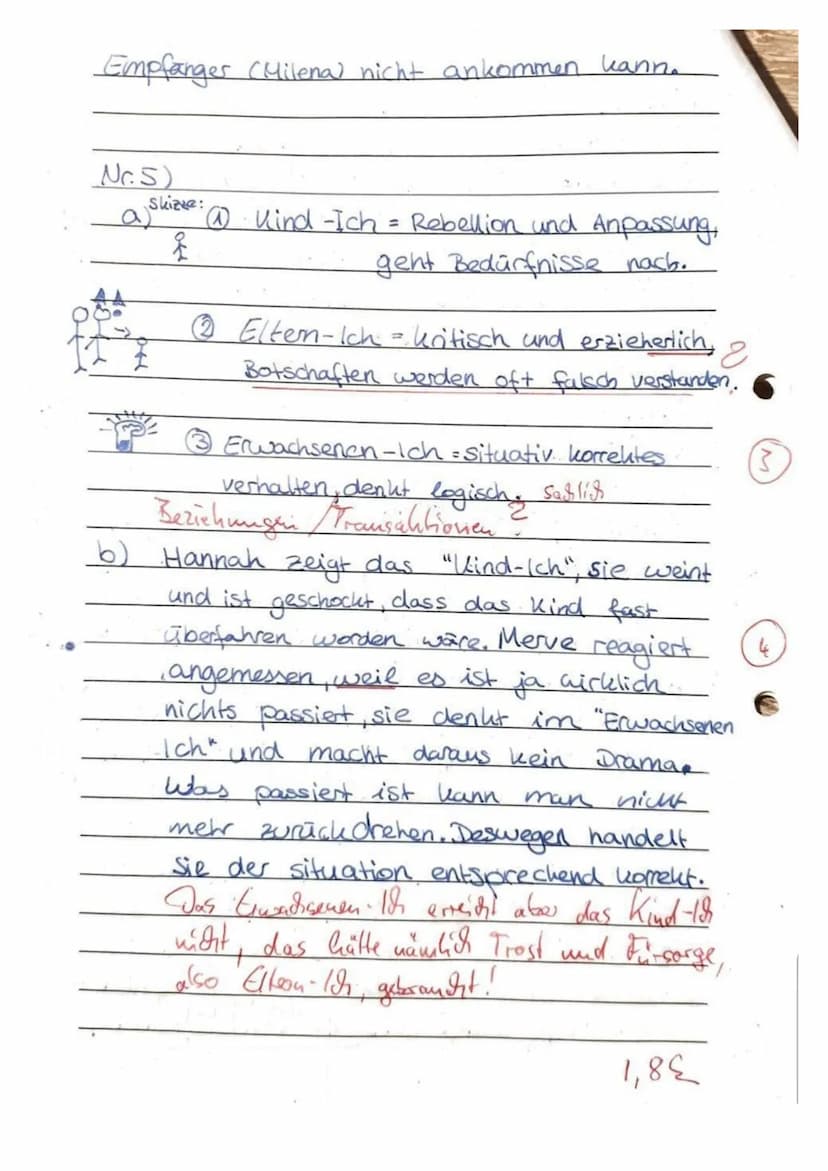 Empfänger (Milena) nicht ankommen kann.
Nr. 5)
a) Skizze: ① Kind-Ich = Rebellion und Anpassung,
geht Bedürfnisse nach.
② Eltern-Ich = kritisch und erzieherlich, ?
Botschaften werden oft falsch verstanden.
③ Erwachsenen-Ich = situativ korrektes
3
verhalten, denkt logisch. sachlich
Beziehungen / Transaktionen ?
b) Hannah zeigt das "Kind-Ich", sie weint
und ist geschockt, dass das Kind fast
überfahren worden wäre. Merve reagiert
4
angemessen, weil es ist ja wirklich
nichts passiert, sie denkt im "Erwachsenen
Ich" und macht daraus kein Drama.
Was passiert ist kann man nicht
mehr zurückdrehen. Deswegen handelt
Sie der situation entsprechend korrekt.
Das Erwachsenen-Ich erreicht aber das Kind-Ich
nicht, das hätte nämlich Trost und Fürsorge,
also Eltern-Ich, gebraucht!